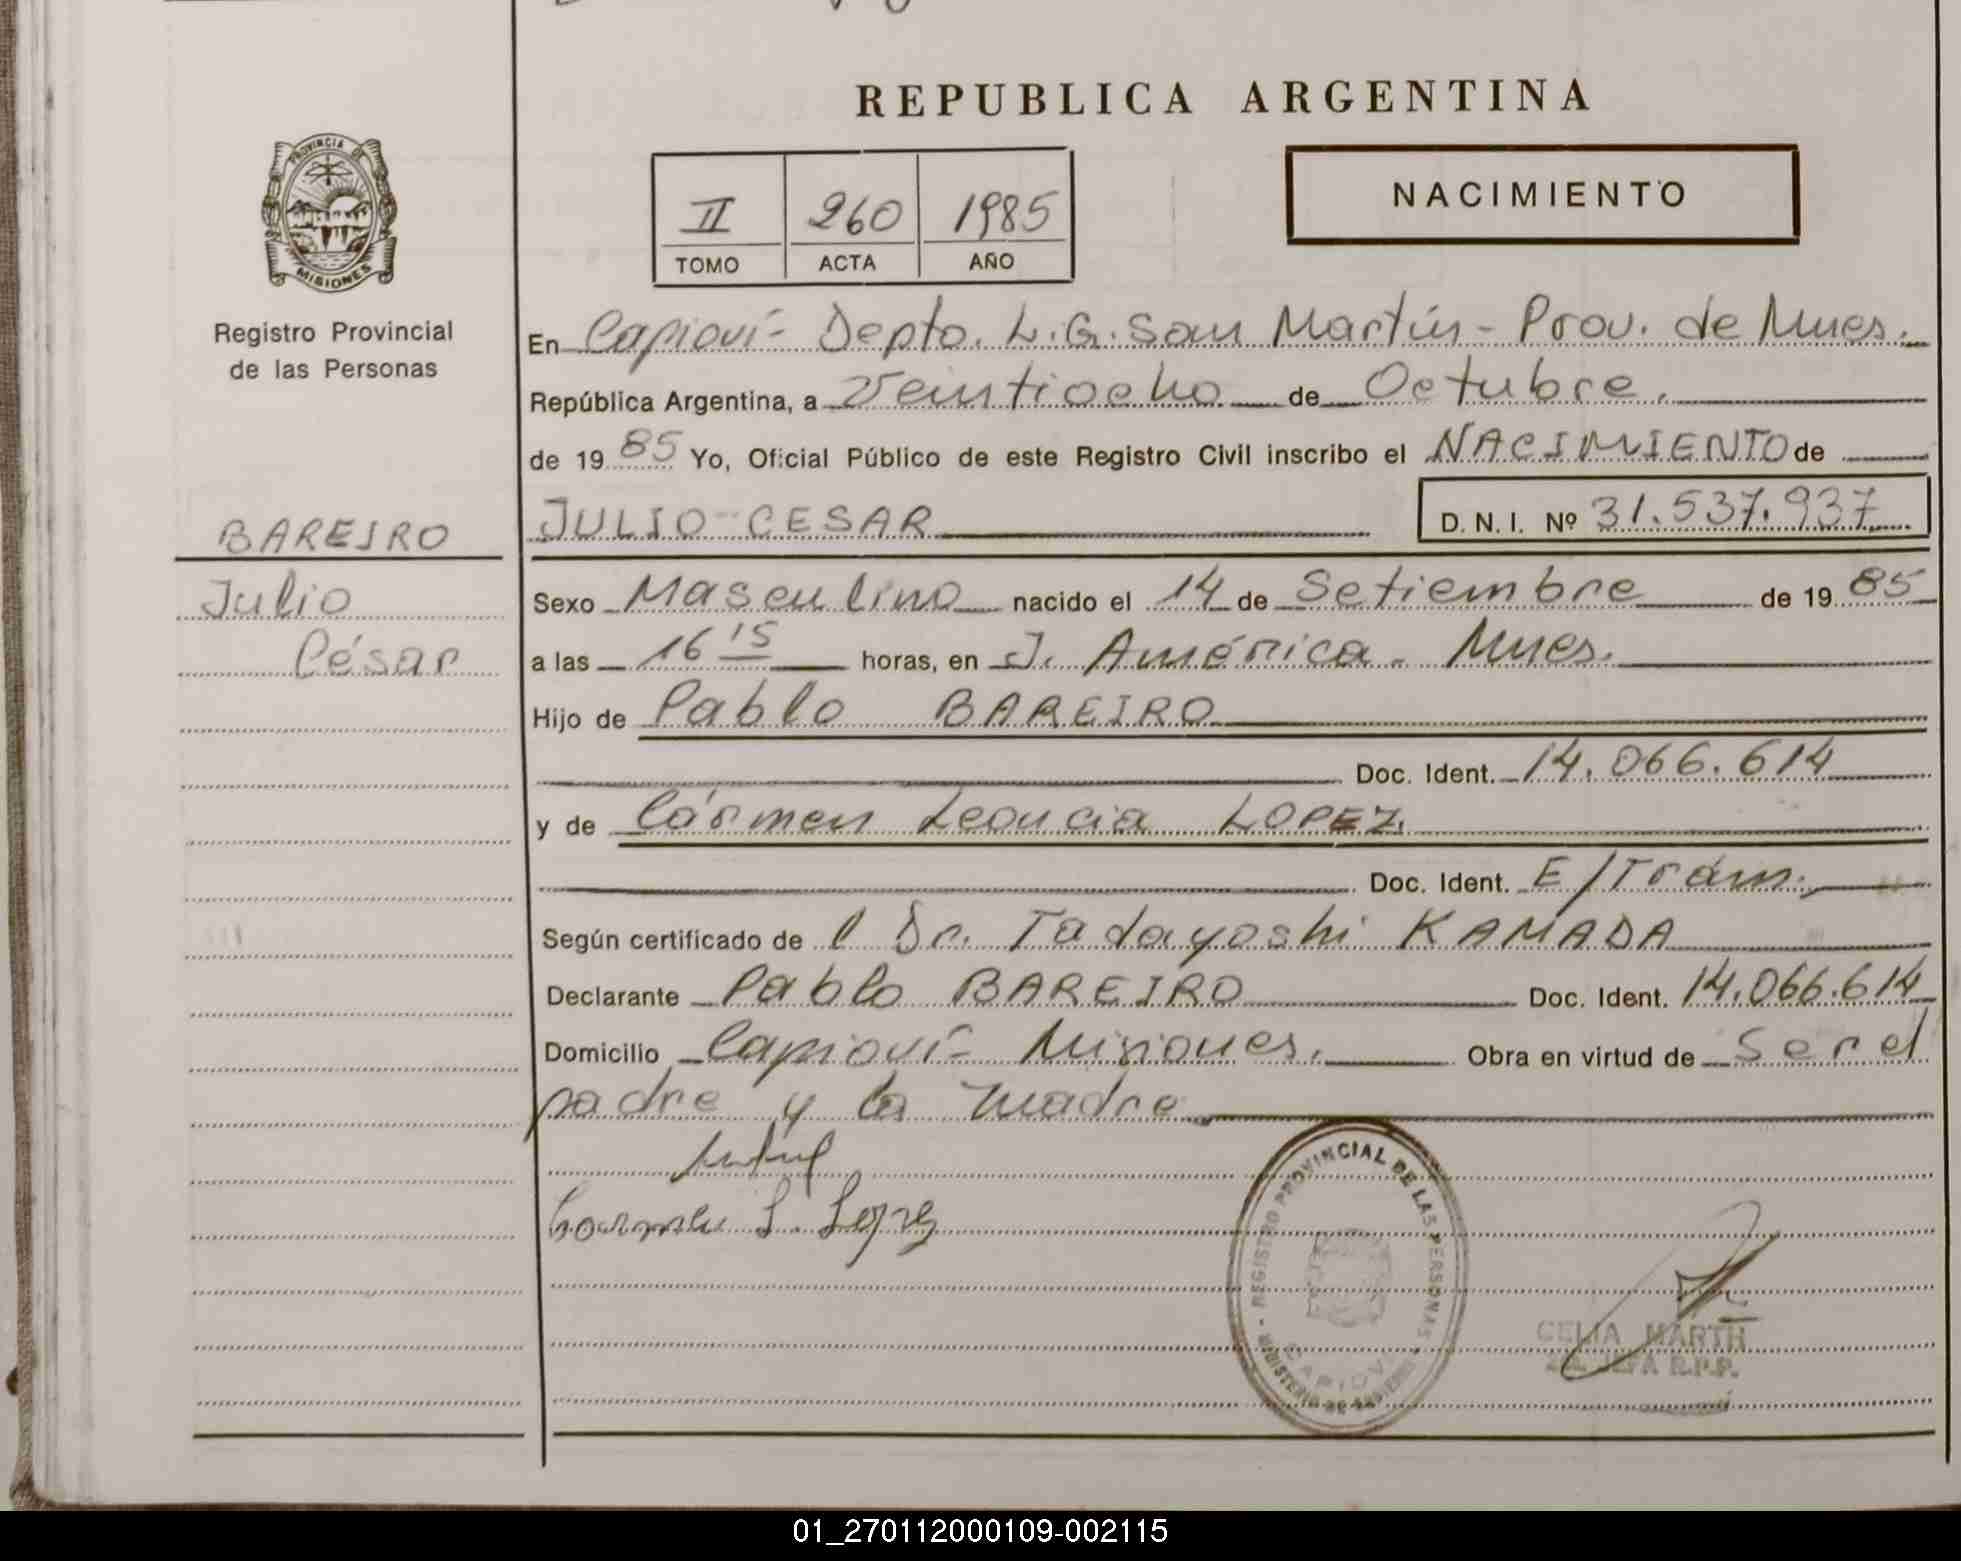 REPUBLICA ARGENTINA
PROVINCIA DE MISIONES
Registro Provincial
de las Personas
II 260 1985
TOMO ACTA AÑO
NACIMIENTO
En Capioví- Depto. L.G. San Martín - Prov. de Mnes.
República Argentina, a Veintiocho de Octubre.
de 19 85 Yo, Oficial Público de este Registro Civil inscribo el NACIMIENTO de
JULIO CESAR D. N. I. Nº 31.537.937
BAREIRO
Julio
César
Sexo Masculino nacido el 14 de Setiembre de 19 85
a las 16 15 horas, en J. América - Mnes.
Hijo de Pablo BAREIRO
Doc. Ident. 14.066.614
y de Cármen Leoncia LOPEZ.
Doc. Ident. E/Trám.
Según certificado de l Dr. Tadayoshi KAMADA
Declarante Pablo BAREIRO Doc. Ident. 14.066.614
Domicilio Capioví- Misiones. Obra en virtud de Ser el
padre y la madre
Carmen L. Lopez
REGISTRO PROVINCIAL DE LAS PERSONAS - MINISTERIO DE GOBIERNO
CAPIOVI
CELIA MARTH
JEFA R.P.P.
01_270112000109-002115